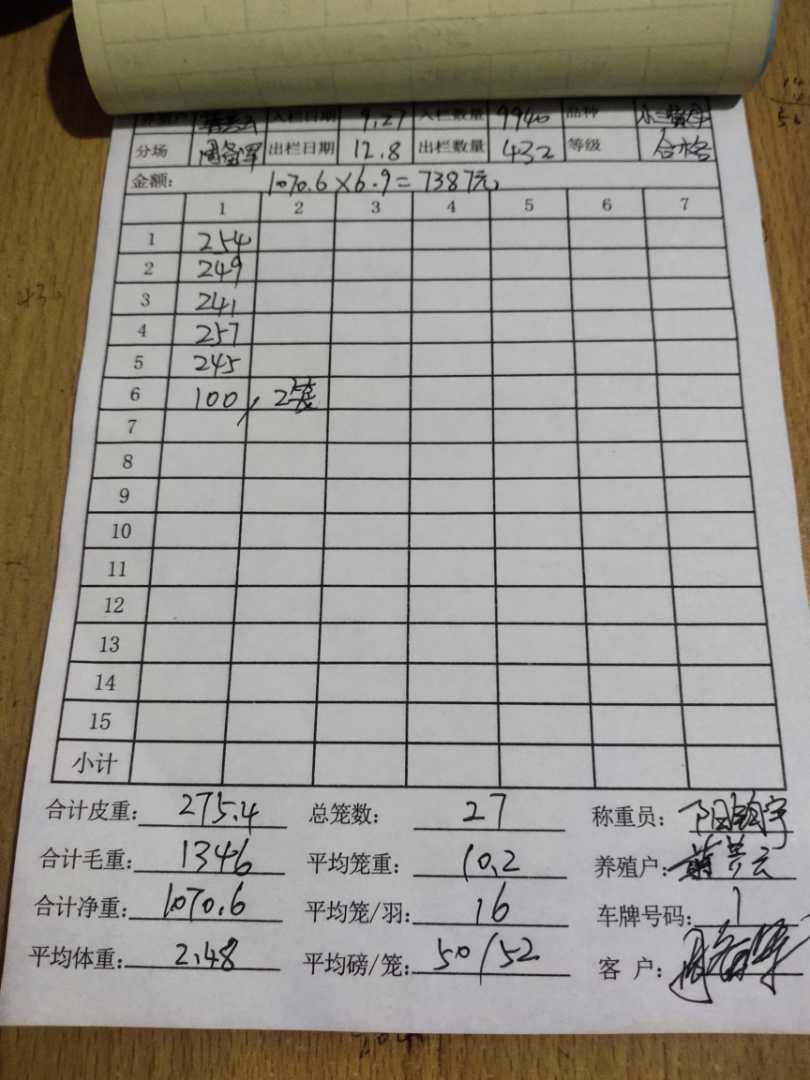 养殖户 蒋美云 入栏日期 9.27 入栏数量 9940 品种
分场 出栏日期 12.8 出栏数量 432 等级 合格
金额: 1070.6×6.9=7387元,
1 2 3 4 5 6 7
1 254
2 249
3 241
4 257
5 245
6 100, 2笼
7
8
9
10
11
12
13
14
15
小计
合计皮重: 275.4 总笼数: 27 称重员:
合计毛重: 1346 平均笼重: 10.2 养殖户: 蒋美云
合计净重: 1070.6 平均笼/羽: 16 车牌号码: 1
平均体重: 2.48 平均磅/笼: 50/52 客 户: